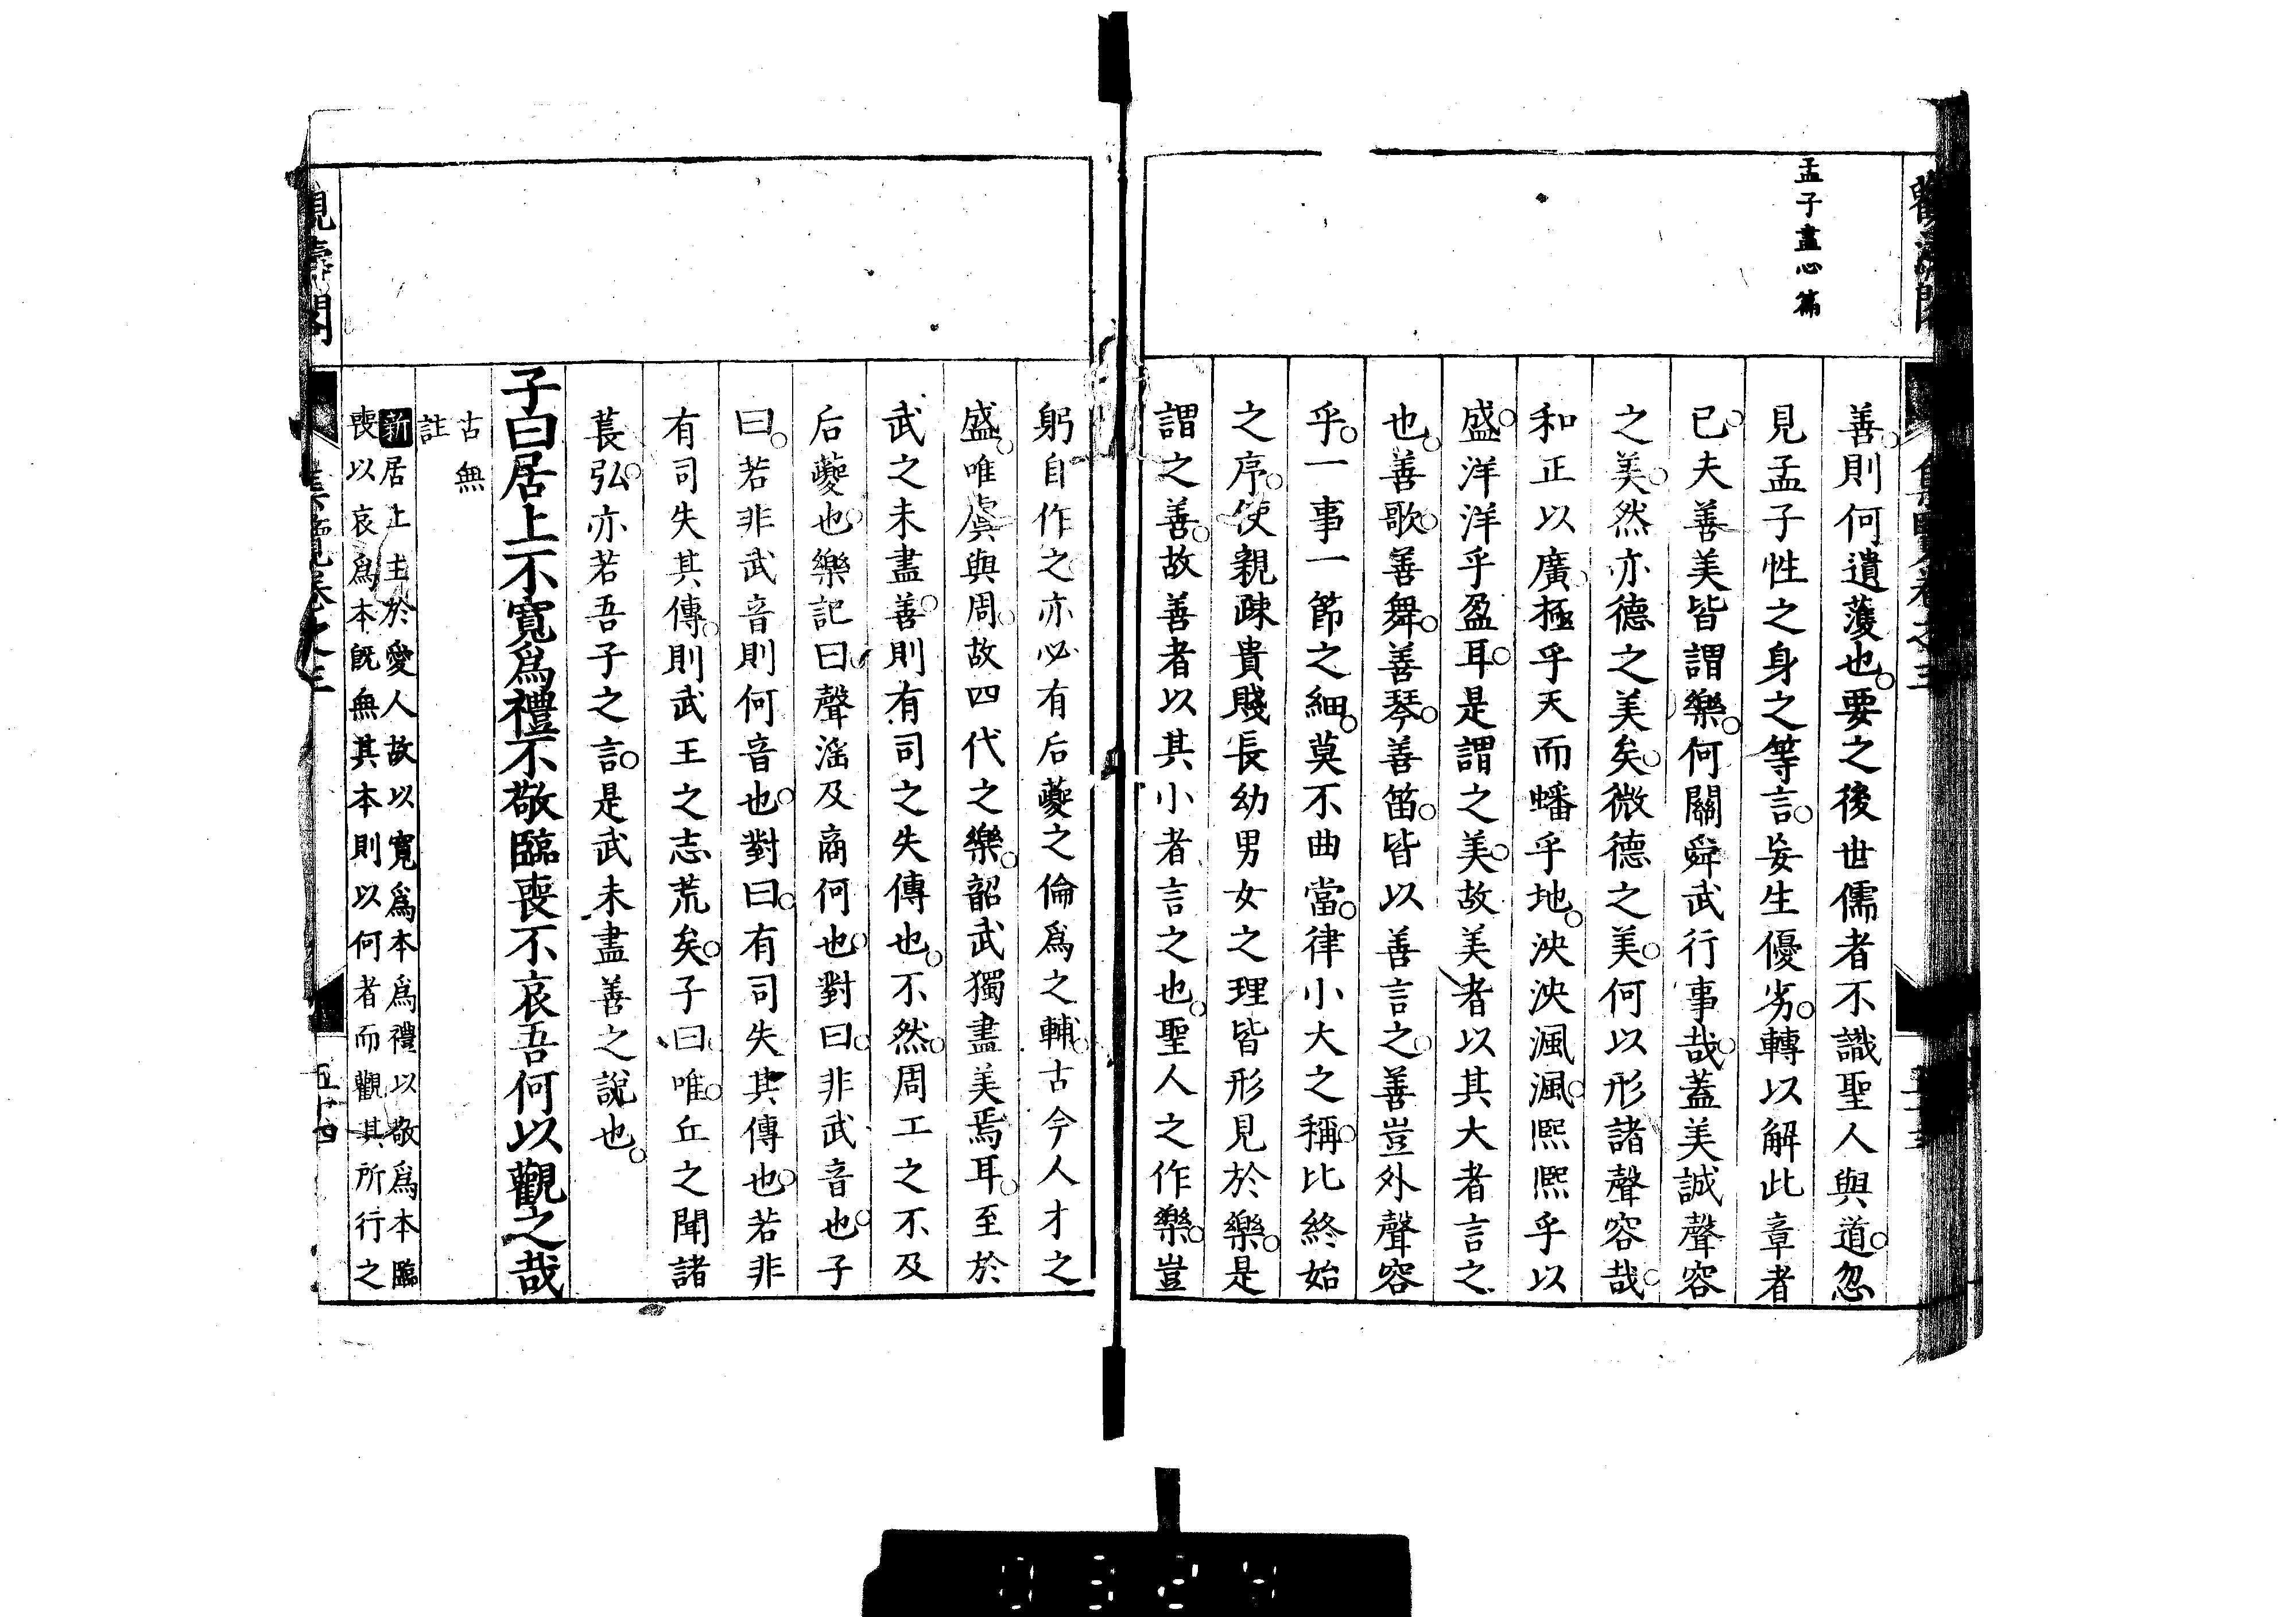 孟子盡心篇
善則何遺薓也要之後世儒者不識聖人與道忽
見孟子性之身之等言妄生優劣轉以解此章者
已夫善美皆謂樂何關舜武行事哉蓋美誠聲容
之美然亦德之美矣微德之美何以形諸聲容哉
和正以廣極乎天而蟠乎地泱泱渢渢熙熙乎以
盛洋洋乎盈耳是謂之美故美者以其大者言之
也善歌善舞善琴善笛皆以善言之善豈外聲容
乎一事一節之細莫不曲當律小大之稱比終始
之序使親疎貴賤長幼男女之理皆形見於樂是
謂之善故善者以其小者言之也聖人之作樂豈
躬自作之亦必有后夔之倫爲之輔古今人才之
盛唯虞與周故四代之樂韶武獨盡美焉耳至於
武之未盡善則有司之失傳也不然周工之不及
后夔也樂記曰聲滛及商何也對曰非武音也子
曰若非武音則何音也對曰有司失其傳也若非
有司失其傳則武王之志荒矣子曰唯丘之聞諸
萇弘亦若吾子之言是武未盡善之說也
子曰居上不寬爲禮不敬臨喪不哀吾何以觀之哉
古無
註
新居上主於愛人故以寬爲本爲禮以敬爲本臨
喪以哀爲本既無其本則以何者而觀其所行之
集覽卷之三
五十四